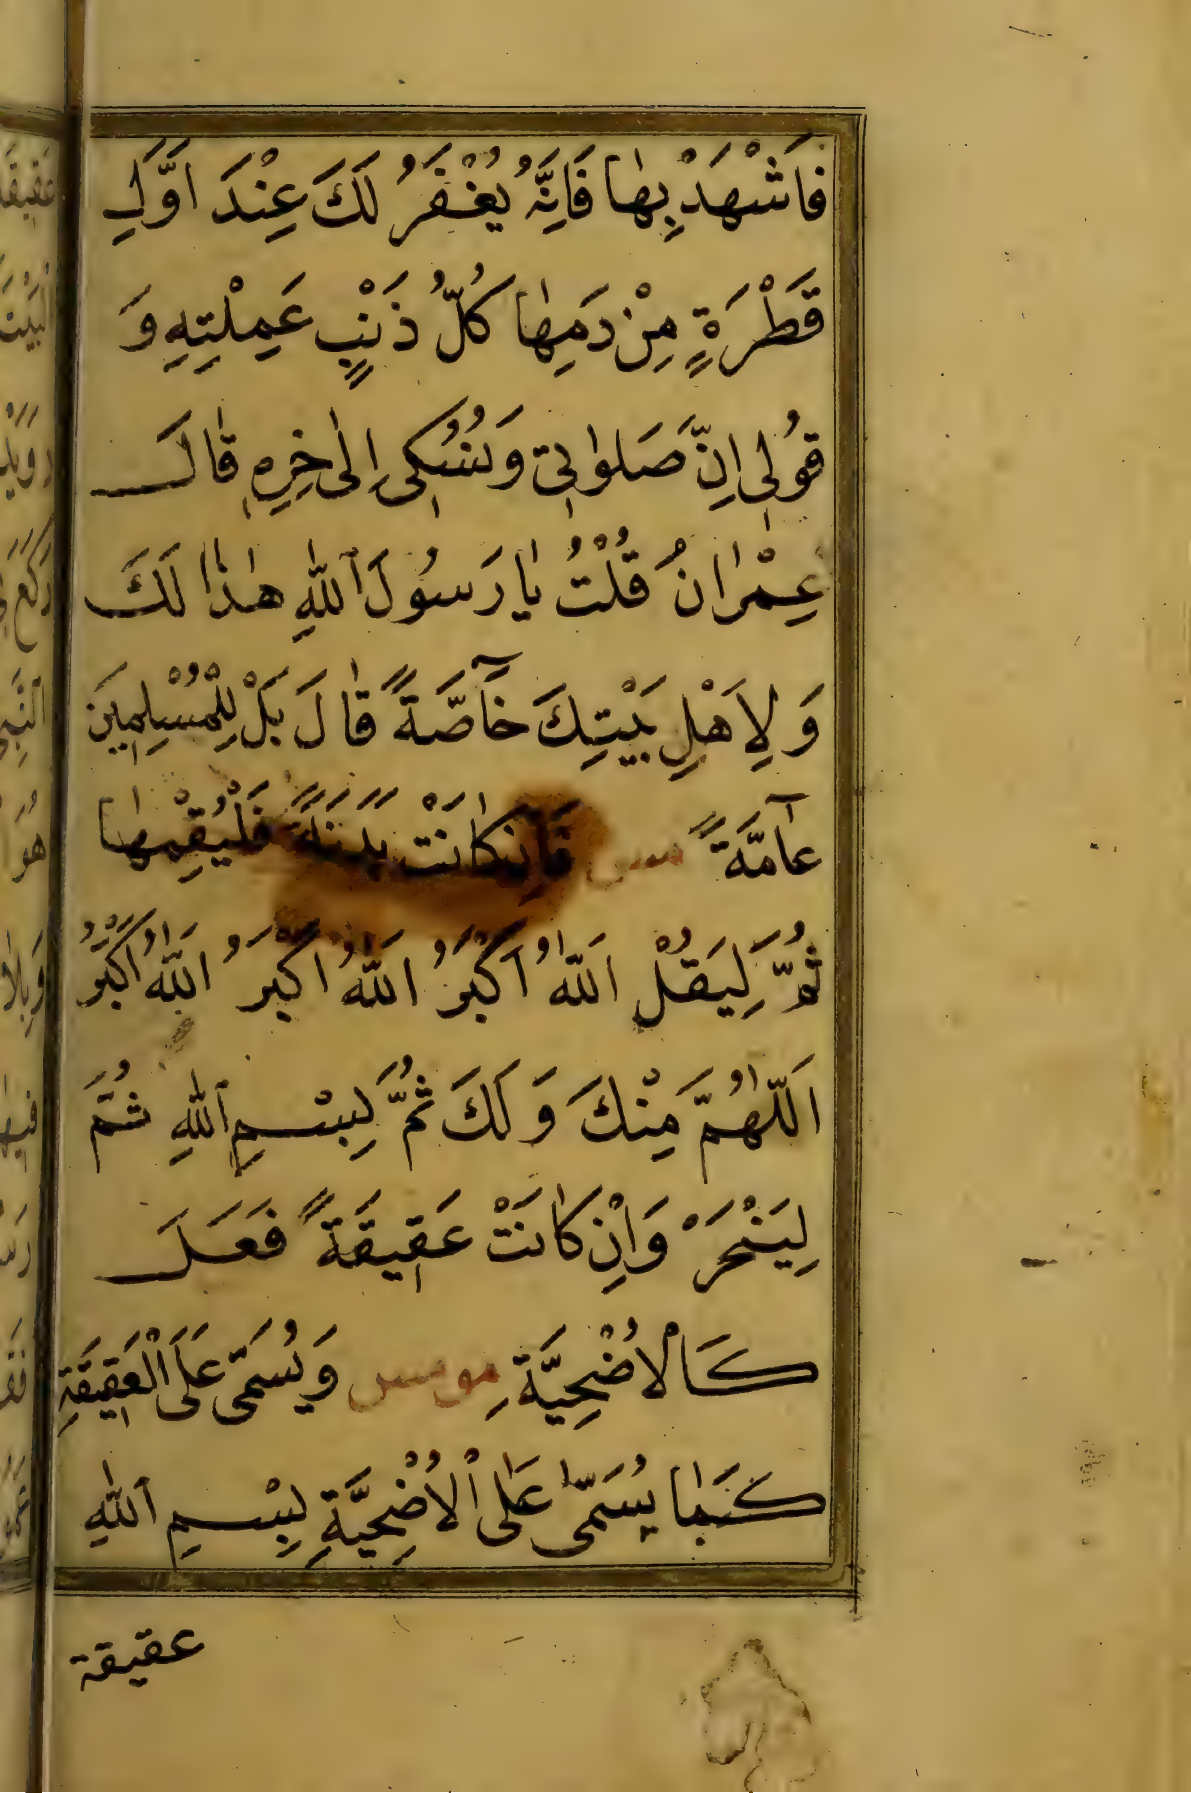 فَاَشْهَدْ بِهٰا فَاِنَّهُ يُغْفَرُ لَكَ عِنْدَ اَوَّلِ
قَطْرَةٍ مِنْ دَمِهٰا كُلُّ ذَنْبٍ عَمِلْتِهِ وَ
قُولٖى اِنَّ صَلوٰتٖى وَنُسُكٖى اِلٰى خِرِهٖ قٰالَ
عِمْرٰانُ قُلْتُ يٰا رَسُولَ اللّٰهِ هٰذٰا لَكَ
وَلِاَهْلِ بَيْتِكَ خٓاصَّةً قٰالَ بَلْ لِلْمُسْلِمِينَ
عٓامَّةً مس فَاِنْ كٰانَتْ بَدَنَةً فَلْيُقِمْهٰا
ثُمَّ لِيَقُلْ اَللّٰهُ اَكْبَرُ اَللّٰهُ اَكْبَرُ اَللّٰهُ اَكْبَرُ
اَللّٰهُمَّ مِنْكَ وَلَكَ ثُمَّ لِبِسْمِ اللّٰهِ ثُمَّ
لِيَنْحَرْ وَاِنْ كٰانَتْ عَقٖيقَةً فَعَلَ
كَالْاُضْحِيَّةِ مو مس وَيُسَمّٖى عَلَى الْعَقٖيقَةِ
كَمٰا يُسَمّٖى عَلَى الْاُضْحِيَّةِ بِسْمِ اللّٰهِ
عقيقة